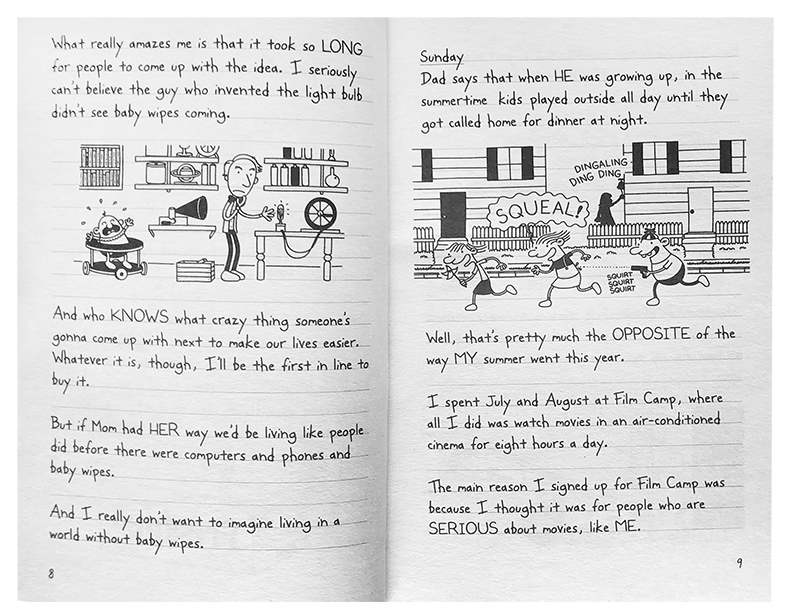 What really amazes me is that it took so LONG
for people to come up with the idea. I seriously
can't believe the guy who invented the light bulb
didn't see baby wipes coming.
And who KNOWS what crazy thing someone's
gonna come up with next to make our lives easier.
Whatever it is, though, I'll be the first in line to
buy it.
But if Mom had HER way we'd be living like people
did before there were computers and phones and
baby wipes.
And I really don't want to imagine living in a
world without baby wipes.
8
Sunday
Dad says that when HE was growing up, in the
summertime kids played outside all day until they
got called home for dinner at night.
DINGALING
DING DING
SQUEAL!
SQUIRT
SQUIRT
SQUIRT
Well, that's pretty much the OPPOSITE of the
way MY summer went this year.
I spent July and August at Film Camp, where
all I did was watch movies in an air-conditioned
cinema for eight hours a day.
The main reason I signed up for Film Camp was
because I thought it was for people who are
SERIOUS about movies, like ME.
9